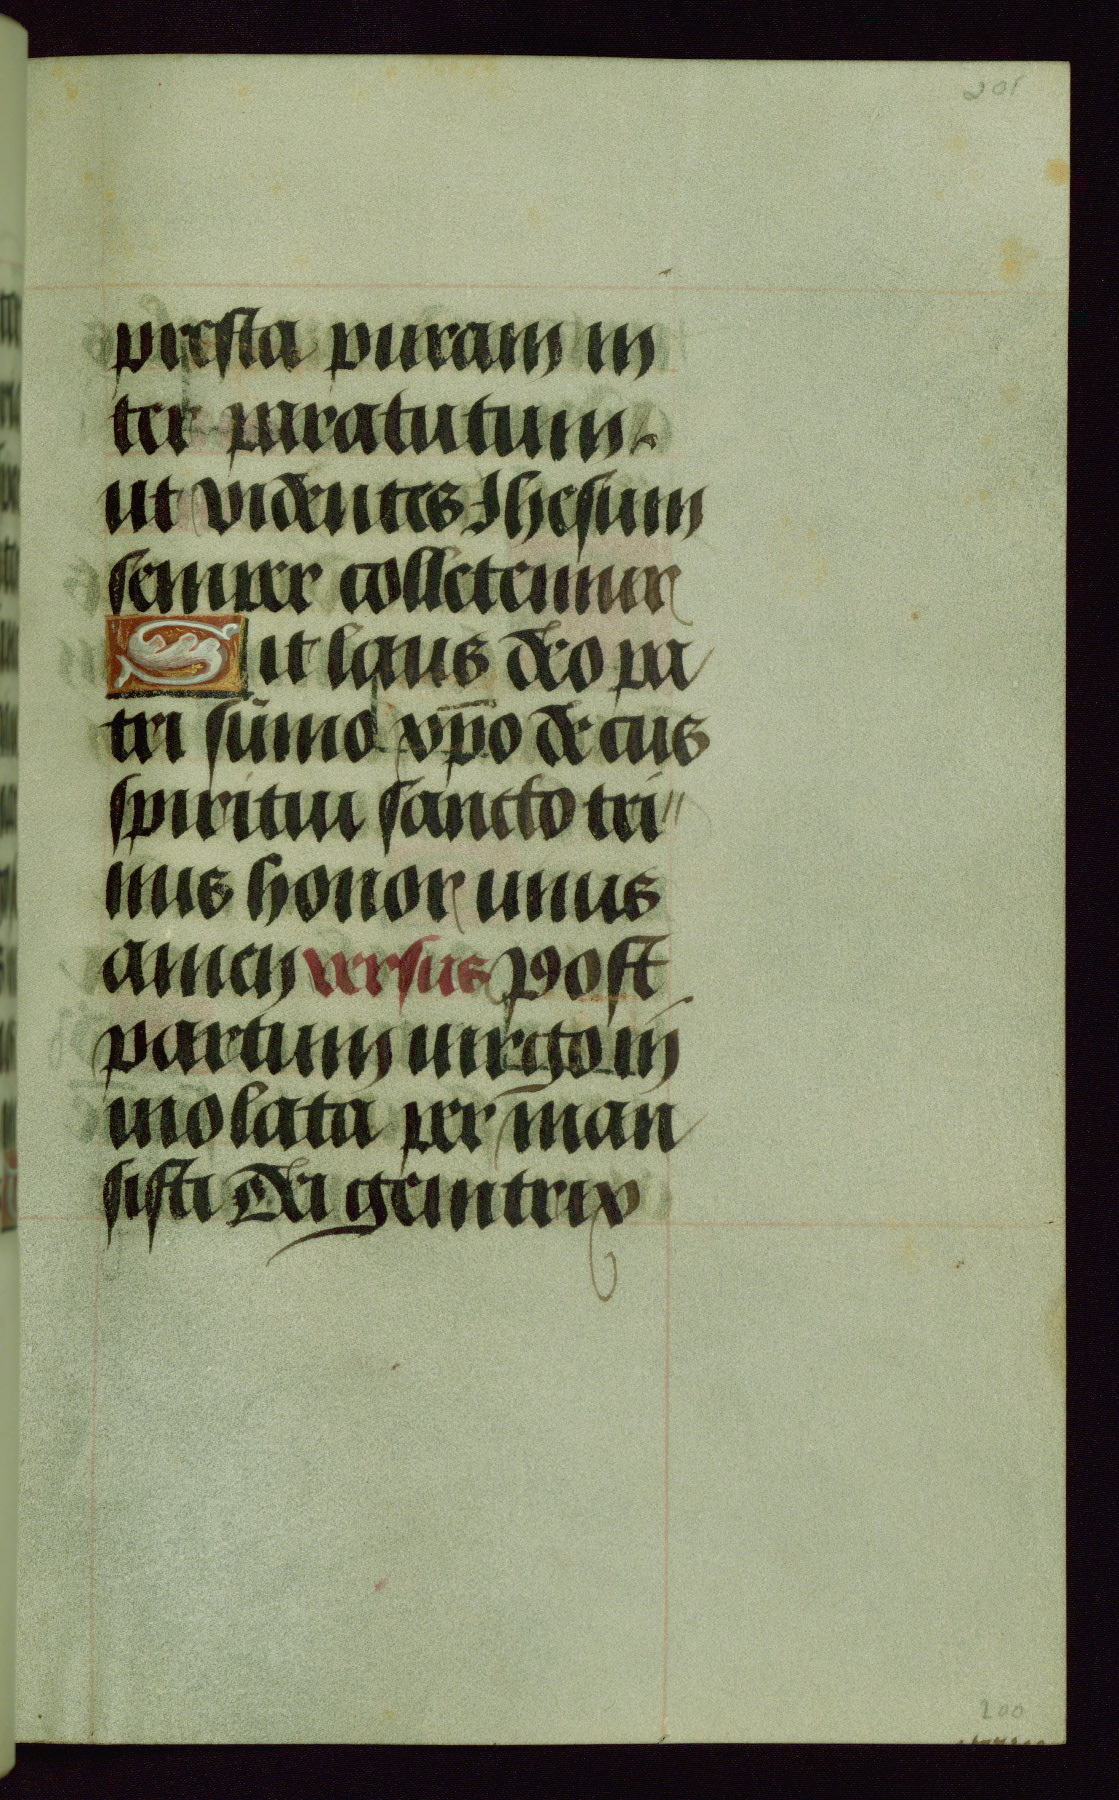 201
presta puram in
ter paratutum
ut videntes Jhesum
semper colletemur
Sit laus deo pa
tri su̅mo xp̅o decus
spiritui sancto tri
nus honor unus
amen versus Post
partum uirgo in
uiolata per man
sisti Dei genitrix
200